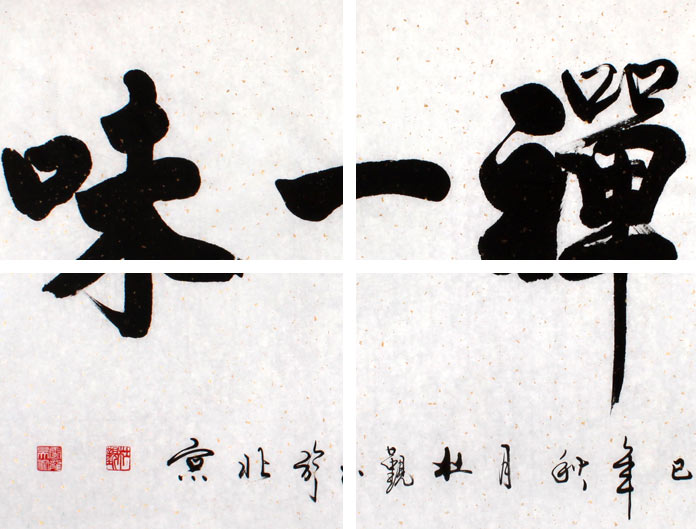 禪一味
巳年秋月杜觀於北京